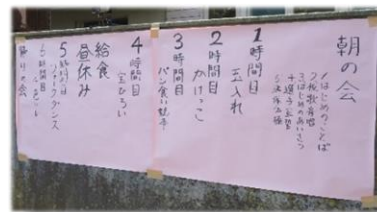 朝の会
1はじめのことば
2校歌斉唱
3はじめのあいさつ
4選手宣誓
5準備体操
1時間目
玉入れ
2時間目
かけっこ
3時間目
パン食い競争
4時間目
宝ひろい
給食
昼休み
5時間目
帰りの会